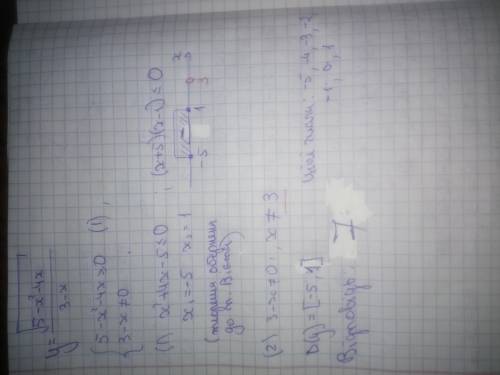 y = √(5-x²-4x) / (3-x)
{ 5-x²-4x≥0 (1),
{ 3-x≠0.
(1) x²+4x-5≤0; (x+5)(x-1)≤0
x₁=-5 x₂=1
(теорема обернена
до т. Вієта)
-5 - 1 3 x
(2) 3-x≠0; x≠3
D(y)=[-5;1] Цілі числа: -5,-4,-3,-2
-1, 0, 1
Відповідь: 7.